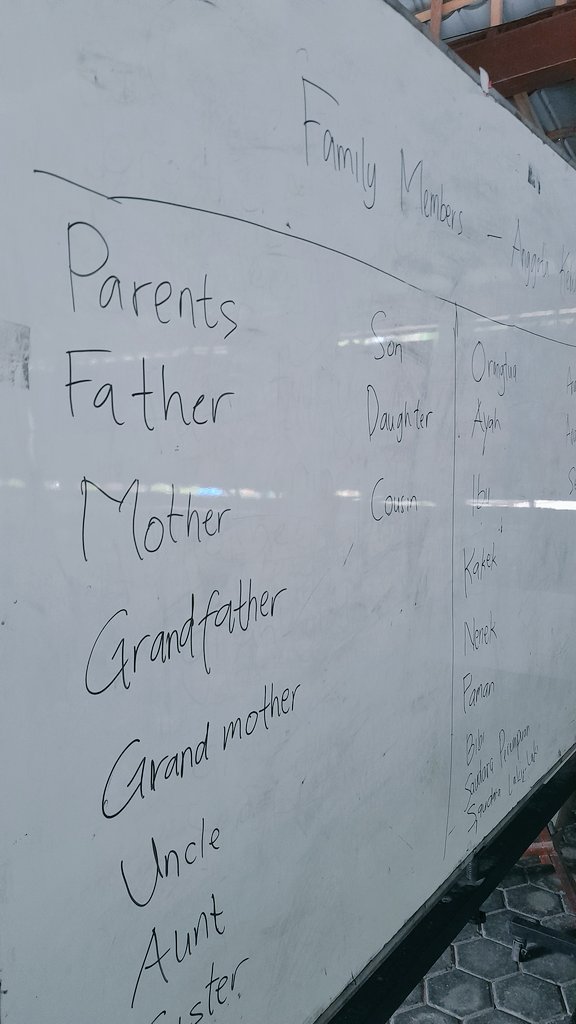 Family Members - Anggota
Parents
Father
Mother
Grandfather
Grand mother
Uncle
Aunt
Sister
Son
Daughter
Cousin
Orangtua
Ayah
Ibu
Kakek
Nenek
Paman
Bibi
Saudara Perempuan
Saudara Laki-Laki